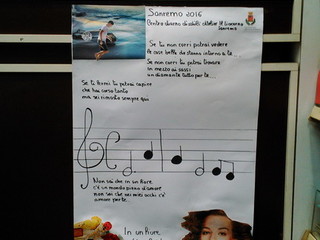 Sanremo 2016
Centro diurno disabili
Sanremo
Se tu non corri potrai vedere
le cose belle che stanno intorno a te
Se non corri tu potrai trovare
in mezzo ai sassi
un diamante tutto per te...
Se ti fermi tu potrai capire
che hai corso tanto
ma sei rimasto sempre qui
Non sai che in un fiore
c'è un mondo pieno d'amore
non sai che nei miei occhi c'è
amore per te.
In un fiore